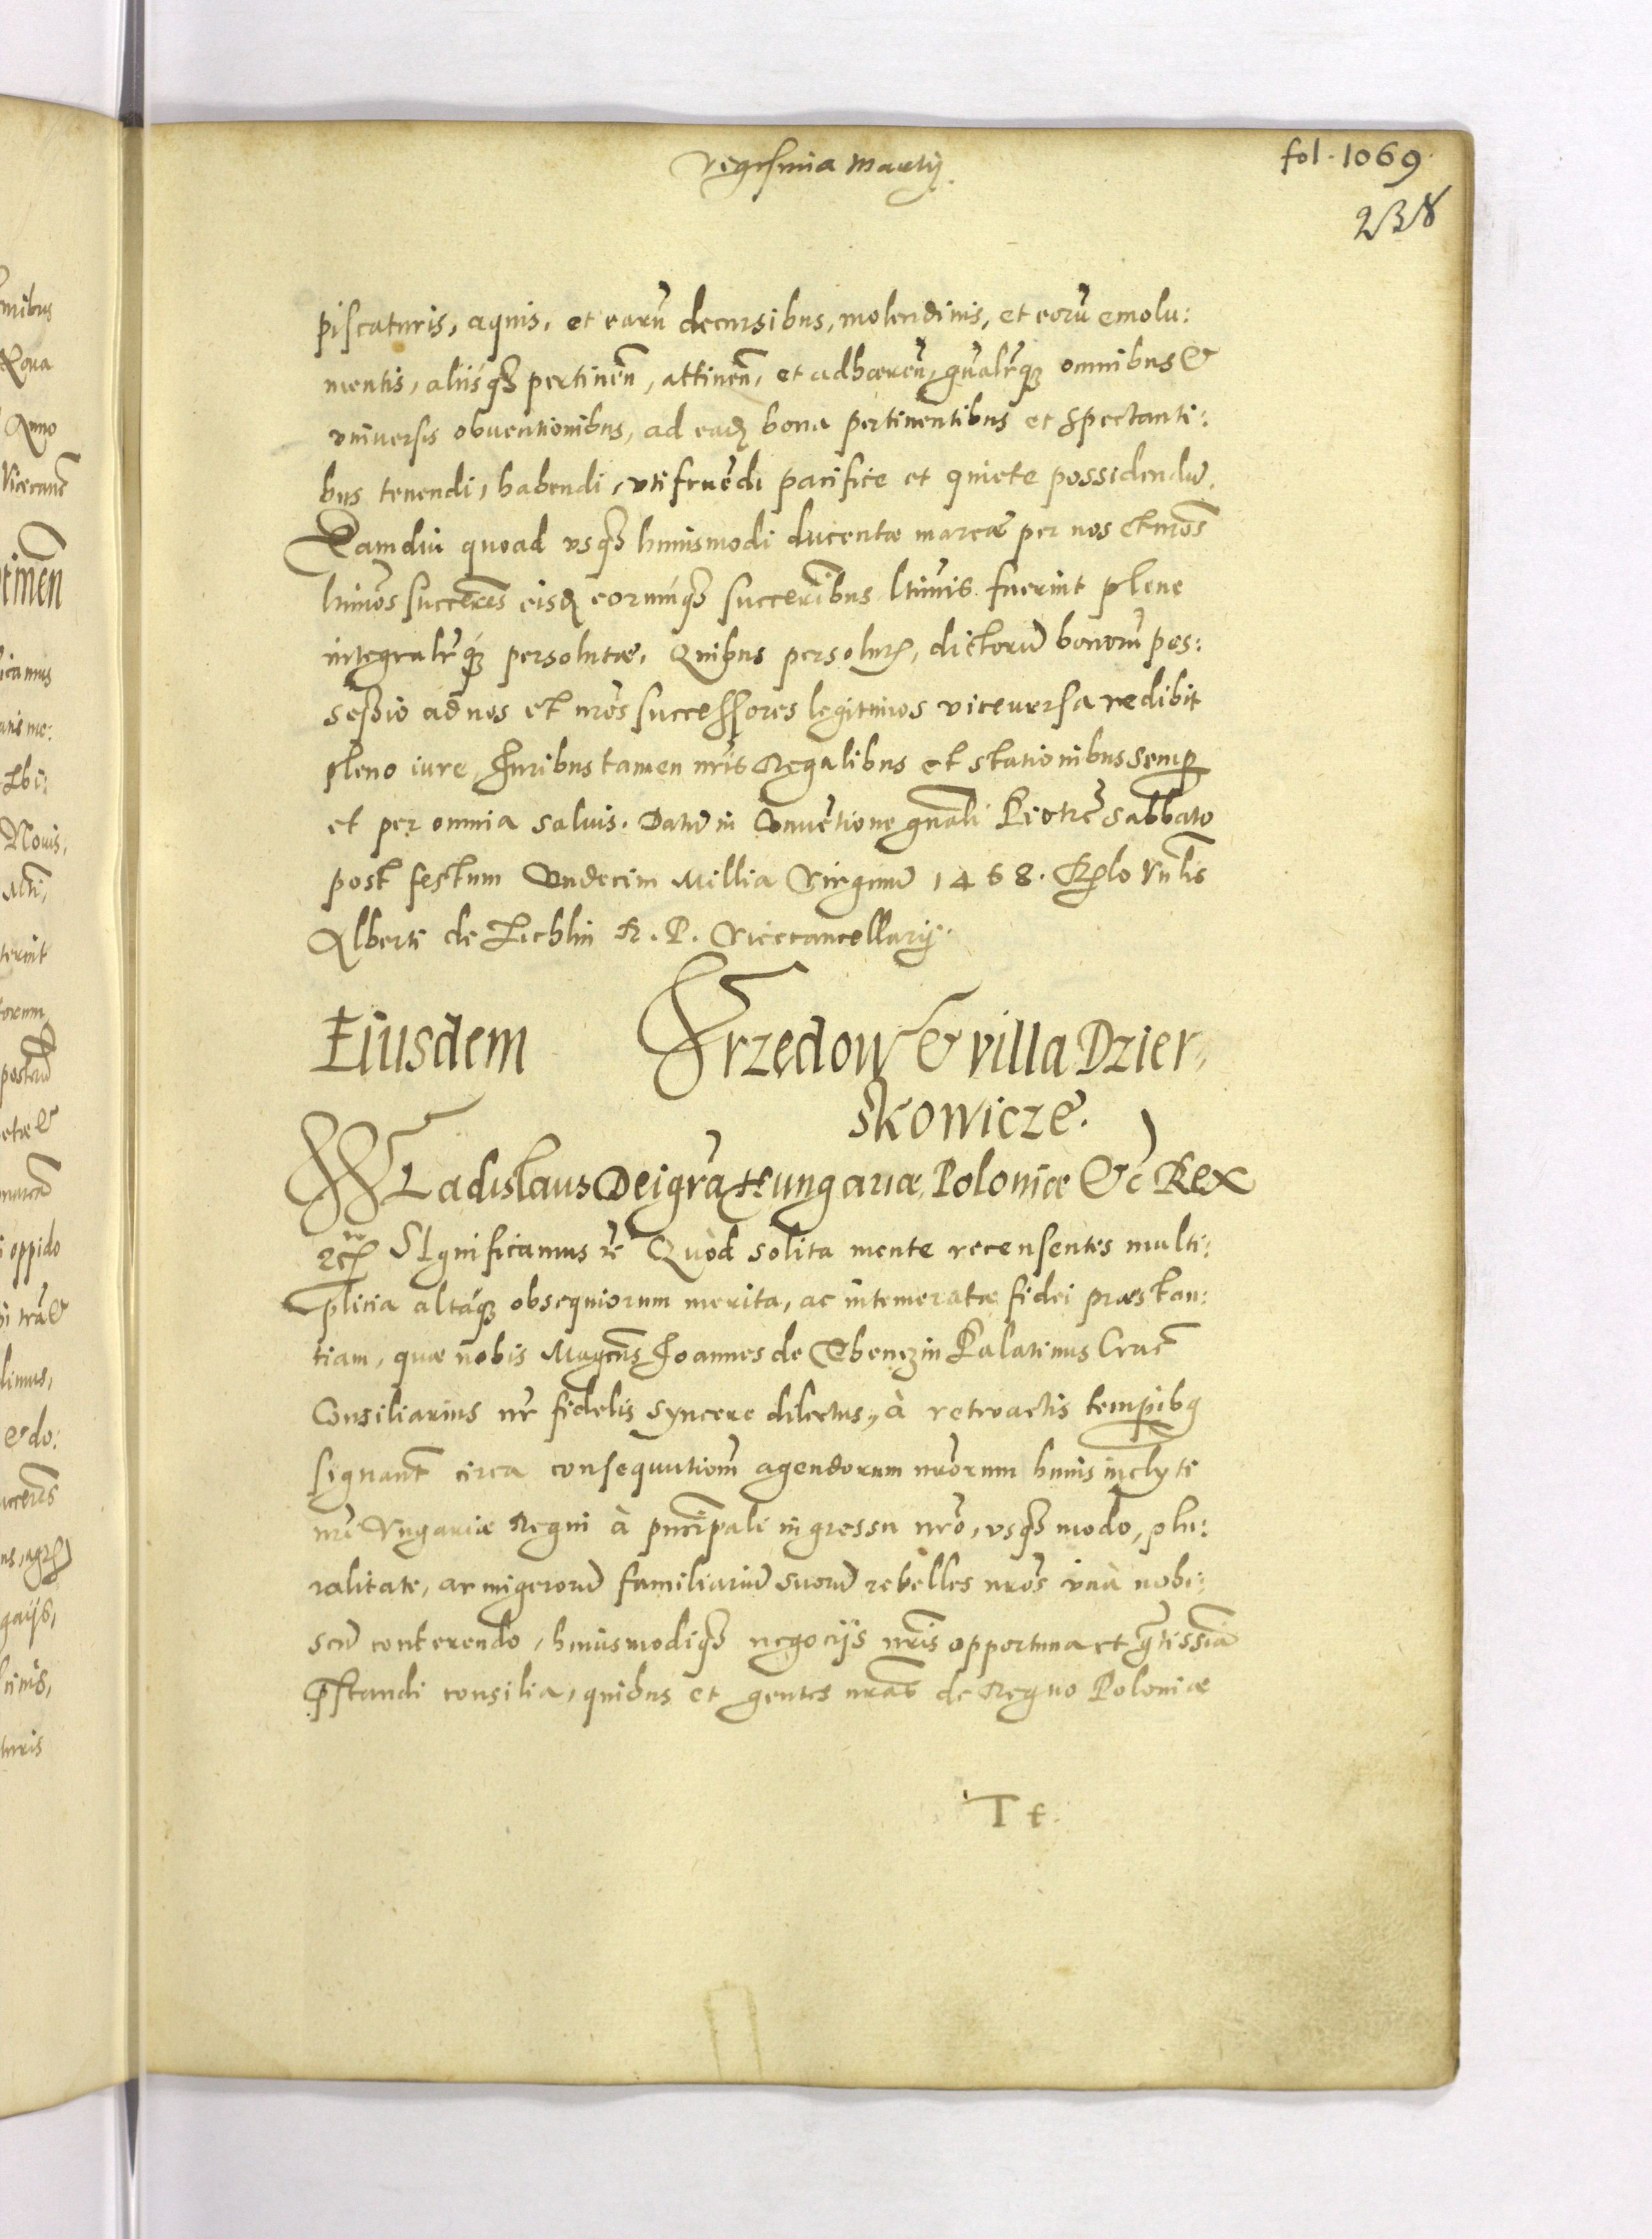 Vegesima Martij.
fol. 1069.
238
piscaturis, aquis, et earū decursibus, molendinis, et eorū emolu:
mentis, aliisq3 pertineñ, attineñ, et adhæreñ, gñalrq3 omnibus &
vniuersis obuentionibus, ad ead bona pertinentibus et spectanti:
bus tenendi, habendi, vtifruēdi pacifice et quiete possidendū.
Tamdiu quoad vsq3 huiusmodi ducentæ marcæ per nos et nr̄os
ltimos succēres eisd eorumq3 succerībus ltimis fuerint plene
integralrq3 persolutæ, Quibus persolutis, dictorū bonorū pos:
sessio ad nos et nr̄os successores legitimos viceuersa redibit
pleno iure, Iuribus tamen nr̄is Regalibus et stationibus semp
et per omnia saluis. Datū in Conuētione gñali Piotrc̄ Sabbato
post festum Vndecim Millia Virginū 1468. Rp̄lo Vn̄lis
Alberti de Zichlin R. P. Vicecancellarij.
Eiusdem Vrzedow & villa Dzier,
skowicze.
WLadislaus Dei gr̄a Hungariæ, Poloniæ &c Rex
SIgnificamus &c Quòd solita mente recensentes multi:
plicia altáq3 obsequiorum merita, ac intemeratæ fidei præstan:
tiam, quæ nobis Magcus Ioannes de Thenczin Palatinus Crac̄
Consiliarius nr̄ fidelis syncere dilectus, à retroactis tempibq
signant̄ circa consequutiom̄ agendorum nr̄orum huius inclyti
nr̄i Vngariæ Regni à pncipali ingressu nr̄o, vsq3 modo, plu:
ralitate, armigerorū familiariū suorū rebelles nr̄os vnà nobi:
scū conterendo, huiusmodiq3 negocijs nr̄is opportuna et gtissia
p̄standi consilia, quibus et gentes nr̄as de Regno Poloniæ
Tt.